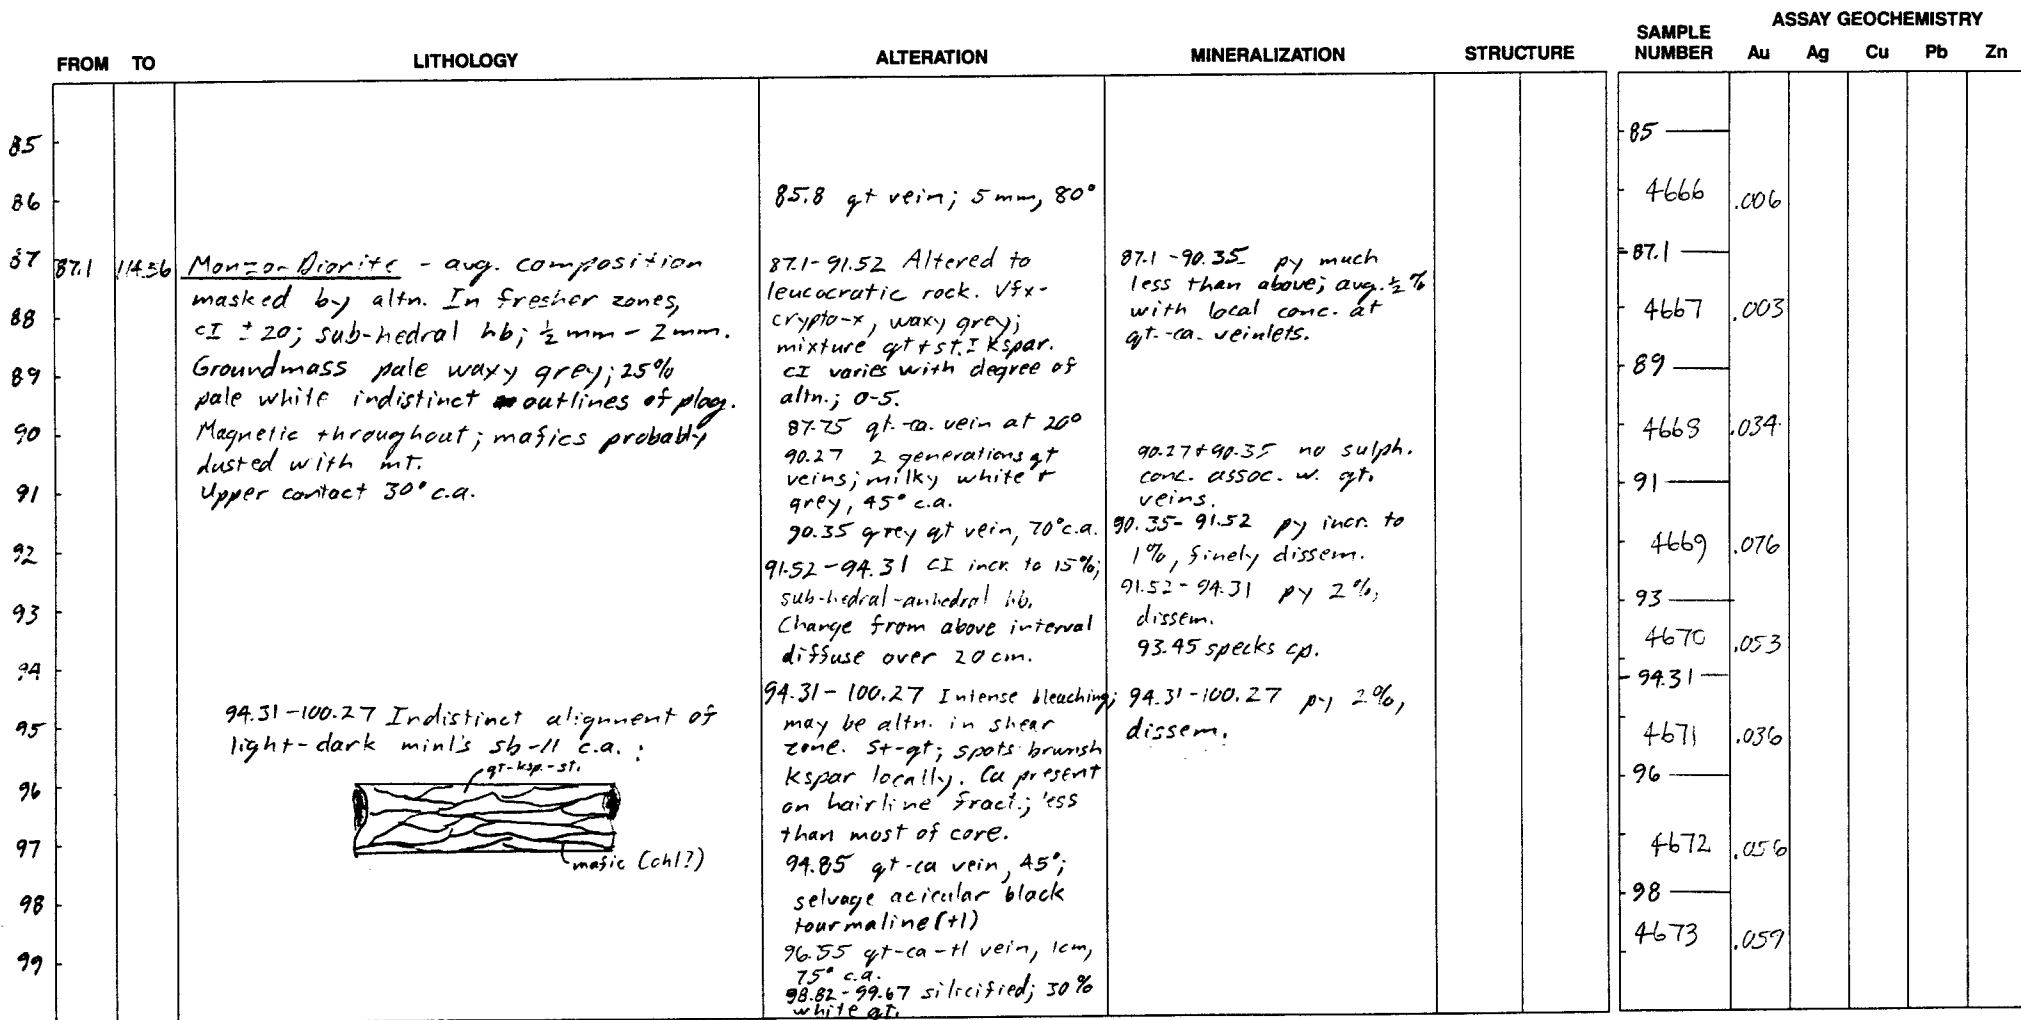 ASSAY GEOCHEMISTRY
FROM TO LITHOLOGY ALTERATION MINERALIZATION STRUCTURE SAMPLE NUMBER Au Ag Cu Pb Zn
85
86
87
88
89
90
91
92
93
94
95
96
97
98
99
87.1 114.56
Monzo-Diorite - avg. composition
masked by altn. In fresher zones,
CI ± 20; sub-hedral hb; ½ mm - 2mm.
Groundmass pale waxy grey; 25%
pale white indistinct outlines of plag.
Magnetic throughout; mafics probably
dusted with mt.
Upper contact 30° c.a.
94.31-100.27 Indistinct alignment of
light-dark minl's sb-11 c.a. :
qt-ksp.-st.
mafic (chl?)
85.8 qt vein; 5 mm, 80°
87.1-91.52 Altered to
leucocratic rock. Vfx-
crypto-x, waxy grey;
mixture qt + st. ± Kspar.
CI varies with degree of
altn.; 0-5.
87.75 qt.-ca. vein at 20°
90.27 2 generations qt
veins; milky white +
grey, 45° c.a.
90.35 grey qt vein, 70° c.a.
91.52-94.31 CI incr. to 15%;
sub-hedral-anhedral hb.
Change from above interval
diffuse over 20 cm.
94.31-100.27 Intense bleaching;
may be altn. in shear
zone. St-qt; spots brwnsh
Kspar locally. Ca present
on hairline fract.; less
than most of core.
94.85 qt-ca vein, 45°;
selvage acicular black
tourmaline (tl)
96.55 qt-ca-tl vein, 1cm,
75° c.a.
98.82-99.67 silicified; 30%
white qt.
87.1-90.35 py much
less than above; avg. ½%
with local conc. at
qt.-ca. veinlets.
90.27+90.35 no sulph.
conc. assoc. w. qt.
veins.
90.35-91.52 py incr. to
1%, finely dissem.
91.52-94.31 py 2%,
dissem.
93.45 specks cp.
94.31-100.27 py 2%,
dissem.
85
4666 .006
87.1
4667 .003
89
4668 .034
91
4669 .076
93
4670 .053
94.31
4671 .036
96
4672 .056
98
4673 .059